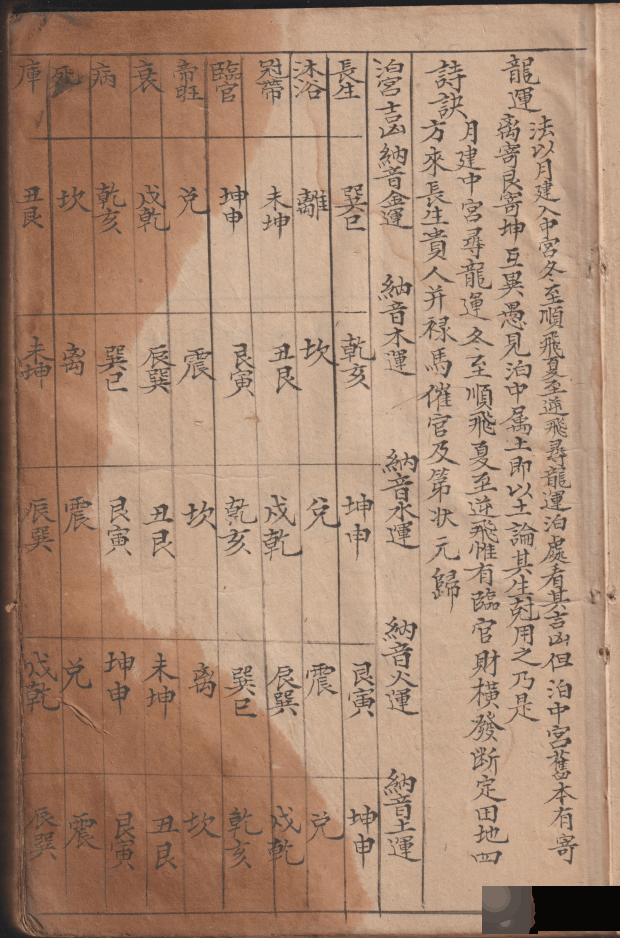 龍運
法以月建入中宮冬至順飛夏至逆飛尋龍運泊處看其吉凶但泊中宮舊本有寄
离寄艮寄坤互異愚見泊中属土即以土論其生剋用之乃是
詩訣
月建中宮尋龍運冬至順飛夏至逆飛惟有臨官財橫發断定田地四
方來長生貴人并禄馬催官及第状元歸
泊宮吉凶 納音金運 納音木運 納音水運 納音火運 納音土運
長生 巽巳 乾亥 坤申 艮寅 坤申
沐浴 離 坎 兌 震 兌
冠帶 未坤 丑艮 戌乾 辰巽 戌乾
臨官 坤申 艮寅 乾亥 巽巳 乾亥
帝旺 兌 震 坎 离 坎
衰 戌乾 辰巽 丑艮 未坤 丑艮
病 乾亥 巽巳 艮寅 坤申 艮寅
死 坎 离 震 兌 震
庫 丑艮 未坤 辰巽 戌乾 辰巽